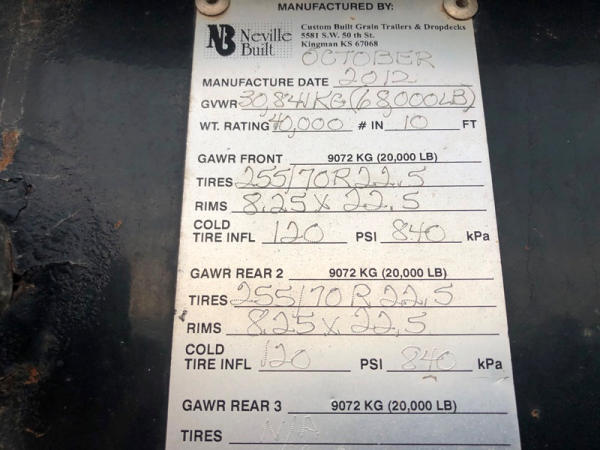 MANUFACTURED BY:
NB Neville Built
Custom Built Grain Trailers & Dropdecks
5581 S.W. 50 th St.
Kingman KS 67068
OCTOBER
MANUFACTURE DATE 2012
GVWR 30,841KG (68,000LB)
WT. RATING 40,000 # IN 10 FT
GAWR FRONT 9072 KG (20,000 LB)
TIRES 255/70R22.5
RIMS 8.25 X 22.5
COLD
TIRE INFL 120 PSI 840 kPa
GAWR REAR 2 9072 KG (20,000 LB)
TIRES 255/70R22.5
RIMS 8.25 X 22.5
COLD
TIRE INFL 120 PSI 840 kPa
GAWR REAR 3 9072 KG (20,000 LB)
TIRES N/A